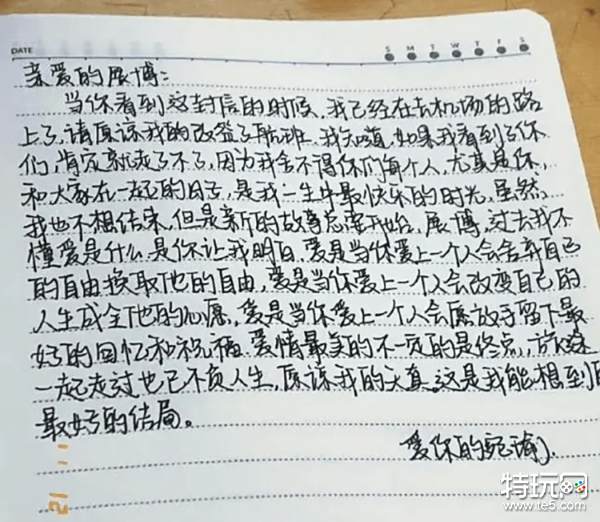 DATE
S M T W T F S
亲爱的展博：
当你看到这封信的时候，我已经在去机场的路
上了，请原谅我的改签了航班，我知道，如果我看到了你
们，肯定就走不了，因为我舍不得你们每个人，尤其是你，
和大家在一起的日子，是我一生中最快乐的时光，虽然，
我也不想结束，但是新的故事总要开始，展博，过去我不
懂爱是什么，是你让我明白，爱是当你爱上一个人会舍弃自己
的自由换取他的自由，爱是当你爱上一个人会改变自己的
人生成全他的心愿，爱是当你爱上一个人会愿放手留下最
好的回忆和祝福，爱情最美的不一定的是终点，旅途
一起走过也已不负人生，原谅我的天真，这是我能想到
最好的结局。
爱你的宛瑜
21 11
特玩网
www.te5.com